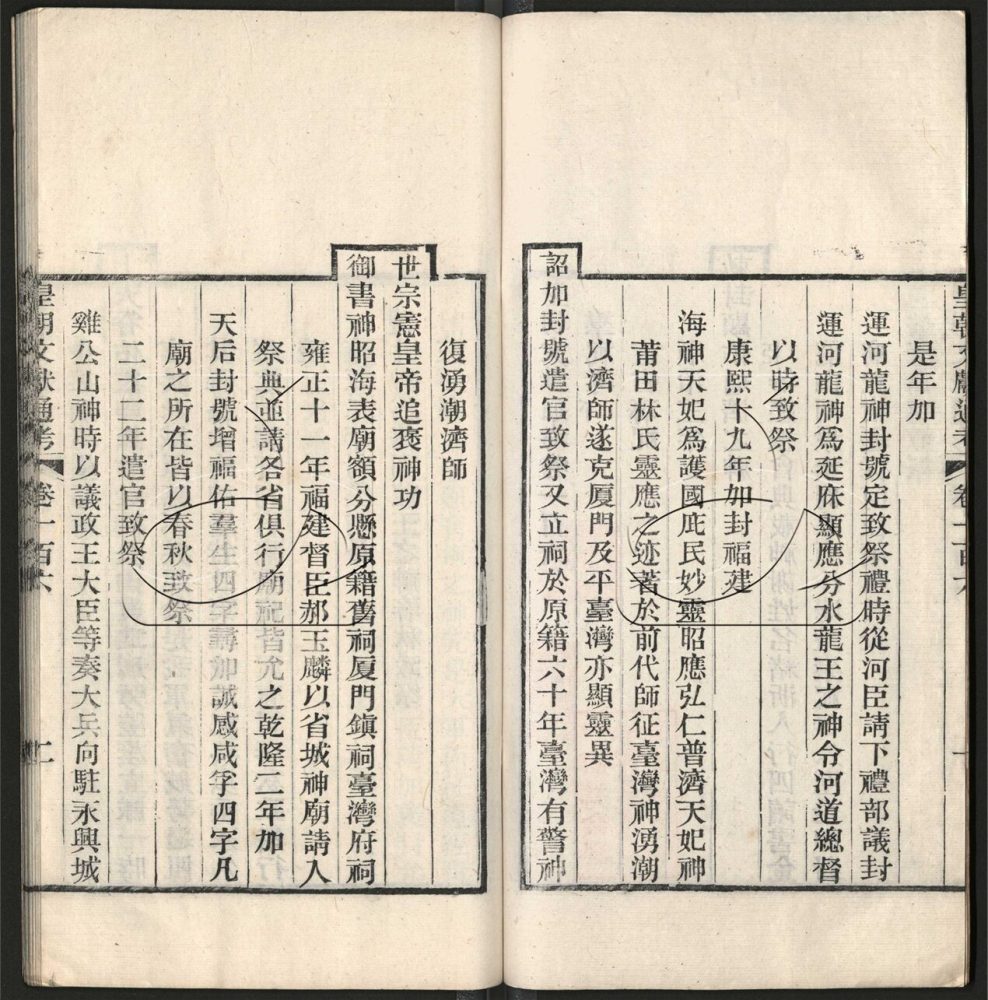 皇朝文獻通考 卷一百六
是年加
運河龍神封號定致祭禮時從河臣請下禮部議封
運河龍神爲延庥顯應分水龍王之神令河道總督
以時致祭
康熙十九年加封福建
海神天妃爲護國庇民妙靈昭應弘仁普濟天妃神
莆田林氏靈應之迹著於前代師征臺灣神湧潮
以濟師遂克厦門及平臺灣亦顯靈異
詔加封號遣官致祭又立祠於原籍六十年臺灣有警神
復湧潮濟師
世宗憲皇帝追褒神功
御書神昭海表廟額分懸原籍舊祠厦門鎮祠臺灣府祠
雍正十一年福建督臣郝玉麟以省城神廟請入
祭典並請各省俱行廟祀皆允之乾隆二年加
天后封號增福佑羣生四字尋加誠感咸孚四字凡
廟之所在皆以春秋致祭
二十二年遣官致祭
雞公山神時以議政王大臣等奏大兵向駐永興城
皇朝文獻通考 卷一百六